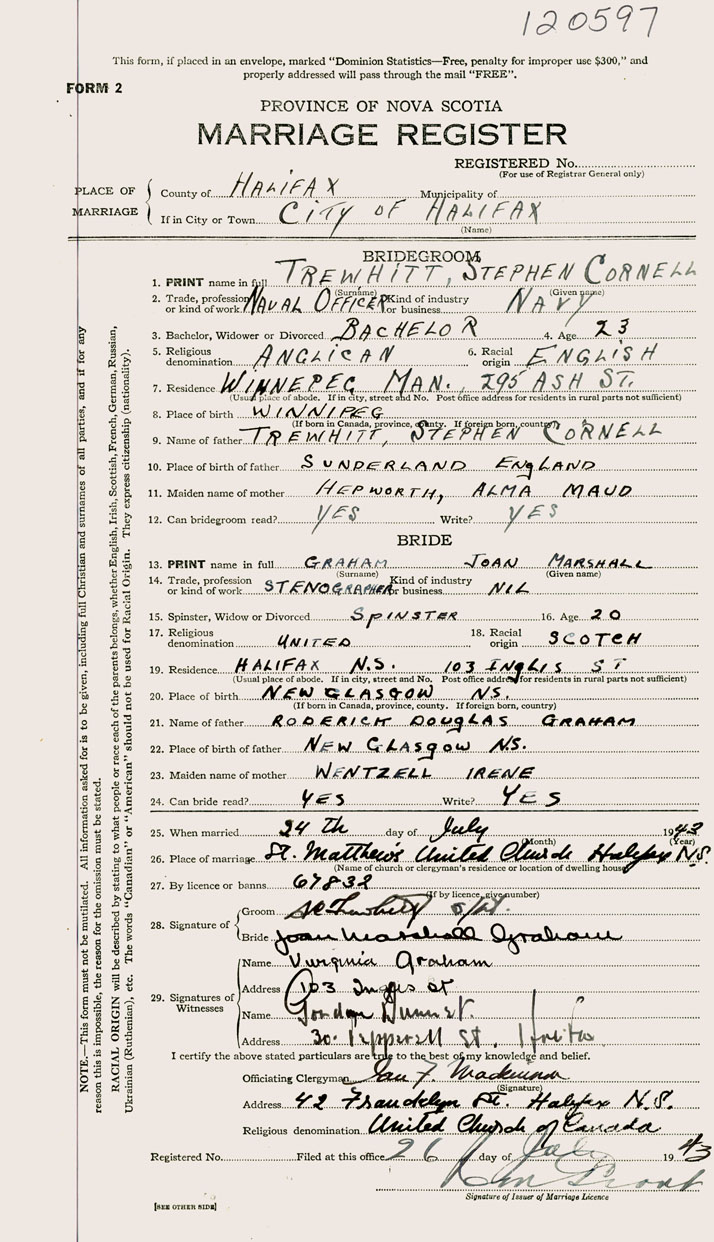 120597
This form, if placed in an envelope, marked "Dominion Statistics—Free, penalty for improper use $300," and
properly addressed will pass through the mail "FREE".
FORM 2
PROVINCE OF NOVA SCOTIA
MARRIAGE REGISTER
REGISTERED No.
(For use of Registrar General only)
PLACE OF MARRIAGE
County of HALIFAX Municipality of
If in City or Town CITY OF HALIFAX
(Name)
BRIDEGROOM
1. PRINT name in full TREWHITT, STEPHEN CORNELL
(Surname) (Given name)
2. Trade, profession or kind of work NAVAL OFFICER Kind of industry or business NAVY
3. Bachelor, Widower or Divorced BACHELOR 4. Age 23
5. Religious denomination ANGLICAN 6. Racial origin ENGLISH
7. Residence WINNEPEG MAN., 295 ASH ST.
(Usual place of abode. If in city, street and No. Post office address for residents in rural parts not sufficient)
8. Place of birth WINNIPEG
(If born in Canada, province, county. If foreign born, country)
9. Name of father TREWHITT, STEPHEN CORNELL
10. Place of birth of father SUNDERLAND ENGLAND
11. Maiden name of mother HEPWORTH, ALMA MAUD
12. Can bridegroom read? YES Write? YES
BRIDE
13. PRINT name in full GRAHAM JOAN MARSHALL
(Surname) (Given name)
14. Trade, profession or kind of work STENOGRAPHER Kind of industry or business NIL
15. Spinster, Widow or Divorced SPINSTER 16. Age 20
17. Religious denomination UNITED 18. Racial origin SCOTCH
19. Residence HALIFAX N.S. 103 INGLIS ST
(Usual place of abode. If in city, street and No. Post office address for residents in rural parts not sufficient)
20. Place of birth NEW GLASGOW NS.
(If born in Canada, province, county. If foreign born, country)
21. Name of father RODERICK DOUGLAS GRAHAM
22. Place of birth of father NEW GLASGOW N.S.
23. Maiden name of mother WENTZELL IRENE
24. Can bride read? YES Write? YES
25. When married 24 th day of July 1943
(Month) (Year)
26. Place of marriage St. Matthew's United Church Halifax N.S.
(Name of church or clergyman's residence or location of dwelling house)
27. By licence or banns 67832
(If by licence, give number)
28. Signature of
Groom
Bride Joan Marshall Graham
29. Signatures of Witnesses
Name Virginia Graham
Address 103 Inglis St
Name Gordon
Address 30 Pepperell St. Halifax
I certify the above stated particulars are true to the best of my knowledge and belief.
Officiating Clergyman Ian F. Mackinnon
(Signature)
Address 42 Francklyn St. Halifax N.S.
Religious denomination United Church of Canada
Registered No. Filed at this office 26 day of July 1943
Signature of Issuer of Marriage Licence
[SEE OTHER SIDE]
NOTE.—This form must not be mutilated. All information asked for is to be given, including full Christian and surnames of all parties, and if for any
reason this is impossible, the reason for the omission must be stated.
RACIAL ORIGIN will be described by stating to what people or race each of the parents belongs, whether English, Irish, Scottish, French, German, Russian,
Ukrainian (Ruthenian), etc. The words "Canadian" or "American" should not be used for Racial Origin. They express citizenship (nationality).